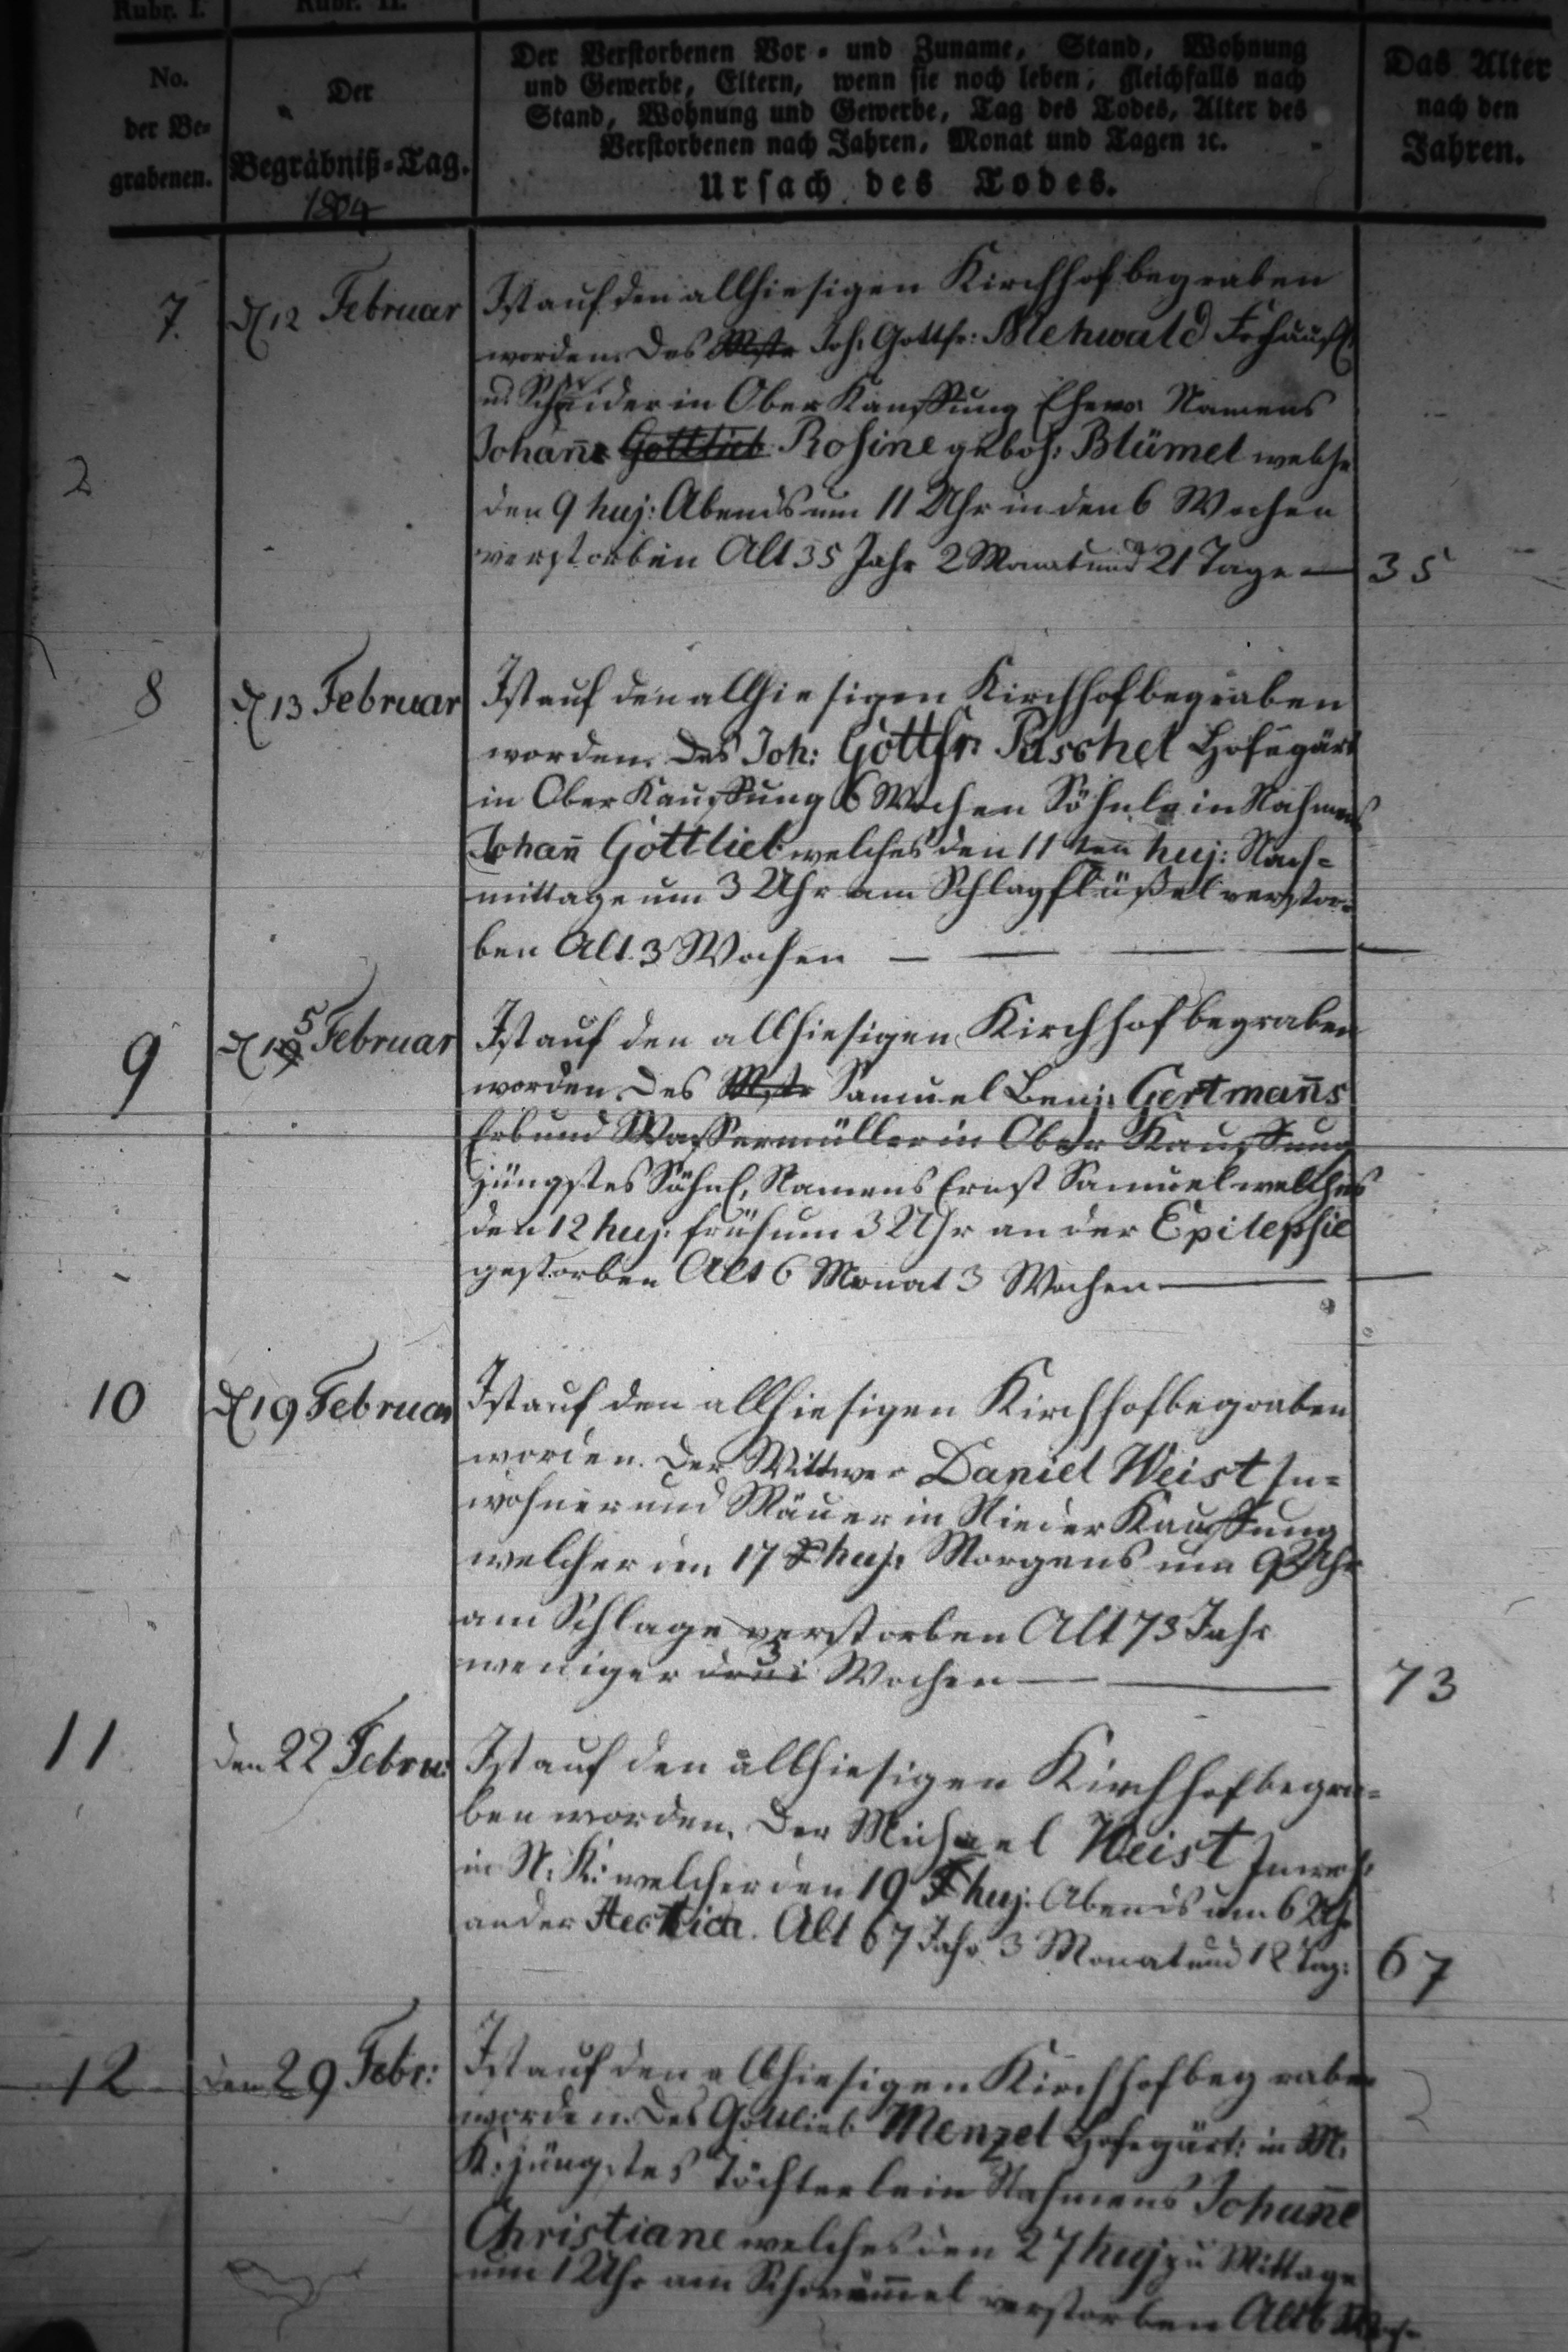 Rubr. I.
Rubr. II.
No.
der Be-
grabenen.
Der
Begräbniß-Tag.
1804
Der Verstorbenen Vor- und Zuname, Stand, Wohnung
und Gewerbe, Eltern, wenn sie noch leben, gleichfalls nach
Stand, Wohnung und Gewerbe, Tag des Todes, Alter des
Verstorbenen nach Jahren, Monat und Tagen ꝛc.
Ursach des Todes.
Das Alter
nach den
Jahren.
7.
d 12 Februar
Ist auf den allhiesigen Kirchhof begraben
worden. Des Mstr Joh: Gottfr: Mehwald Frhäusl:
u. Schneider in Ober Kauffung Ehewe Namens
Johañe Gottlieb Rosine geboh: Blümel welche
2
den 9 huj: Abends um 11 Uhr in den 6 Wochen
verstorben Alt 35 Jahr 2 Monat und 21 Tage — 35
8
d 13 Februar
Ist auf den allhiesigen Kirchhof begraben
worden. Des Joh: Gottfr: Püschel Hofegärt
in Ober Kauffung 6 Wochen Söhnlein Nahmens
Johañ Gottlieb welches den 11ten huj: Nach-
mittage um 3 Uhr am Schlagflüßel verstor-
ben Alt. 3 Wochen — — —
9
d 15 Februar
Ist auf den allhiesigen Kirchhof begraben
worden. Des Mstr Samuel Benj: Gertmañs
Erb und Wassermüller in Ober Kauffung
jüngstes Söhnl, Namens Ernst Samuel welches
den 12 huj: früh um 3 Uhr an der Epilepsie
gestorben Alt 6 Monat 3 Wochen —
10
d 19 Februar
Ist auf den allhiesigen Kirchhof begraben
worden. Der Wittwer Daniel Weist In-
wohner und Mäuer in Nieder Kauffung
welcher den 17 huj: Morgens um 9 Uhr
am Schlage verstorben Alt 73 Jahr
weniger drei 3 Wochen — — 73
11
den 22 Febru:
Ist auf den allhiesigen Kirchhof begra-
ben worden. Der Michael Weist Inwoh:
in N: K: welcher den 19 huj: Abends um 6 Uhr
an der Hectica. Alt 67 Jahr 3 Monat und 12 Tag: 67
12
den 29 Febr:
Ist auf den allhiesigen Kirchhof begraben
worden. Des Gottlieb Menzel Hofegärt: in M:
K: jüngstes Töchterlein Nahmens Johañe
Christiane welches den 27 huj zu Mittage
um 1 Uhr am verstorben Alt 6